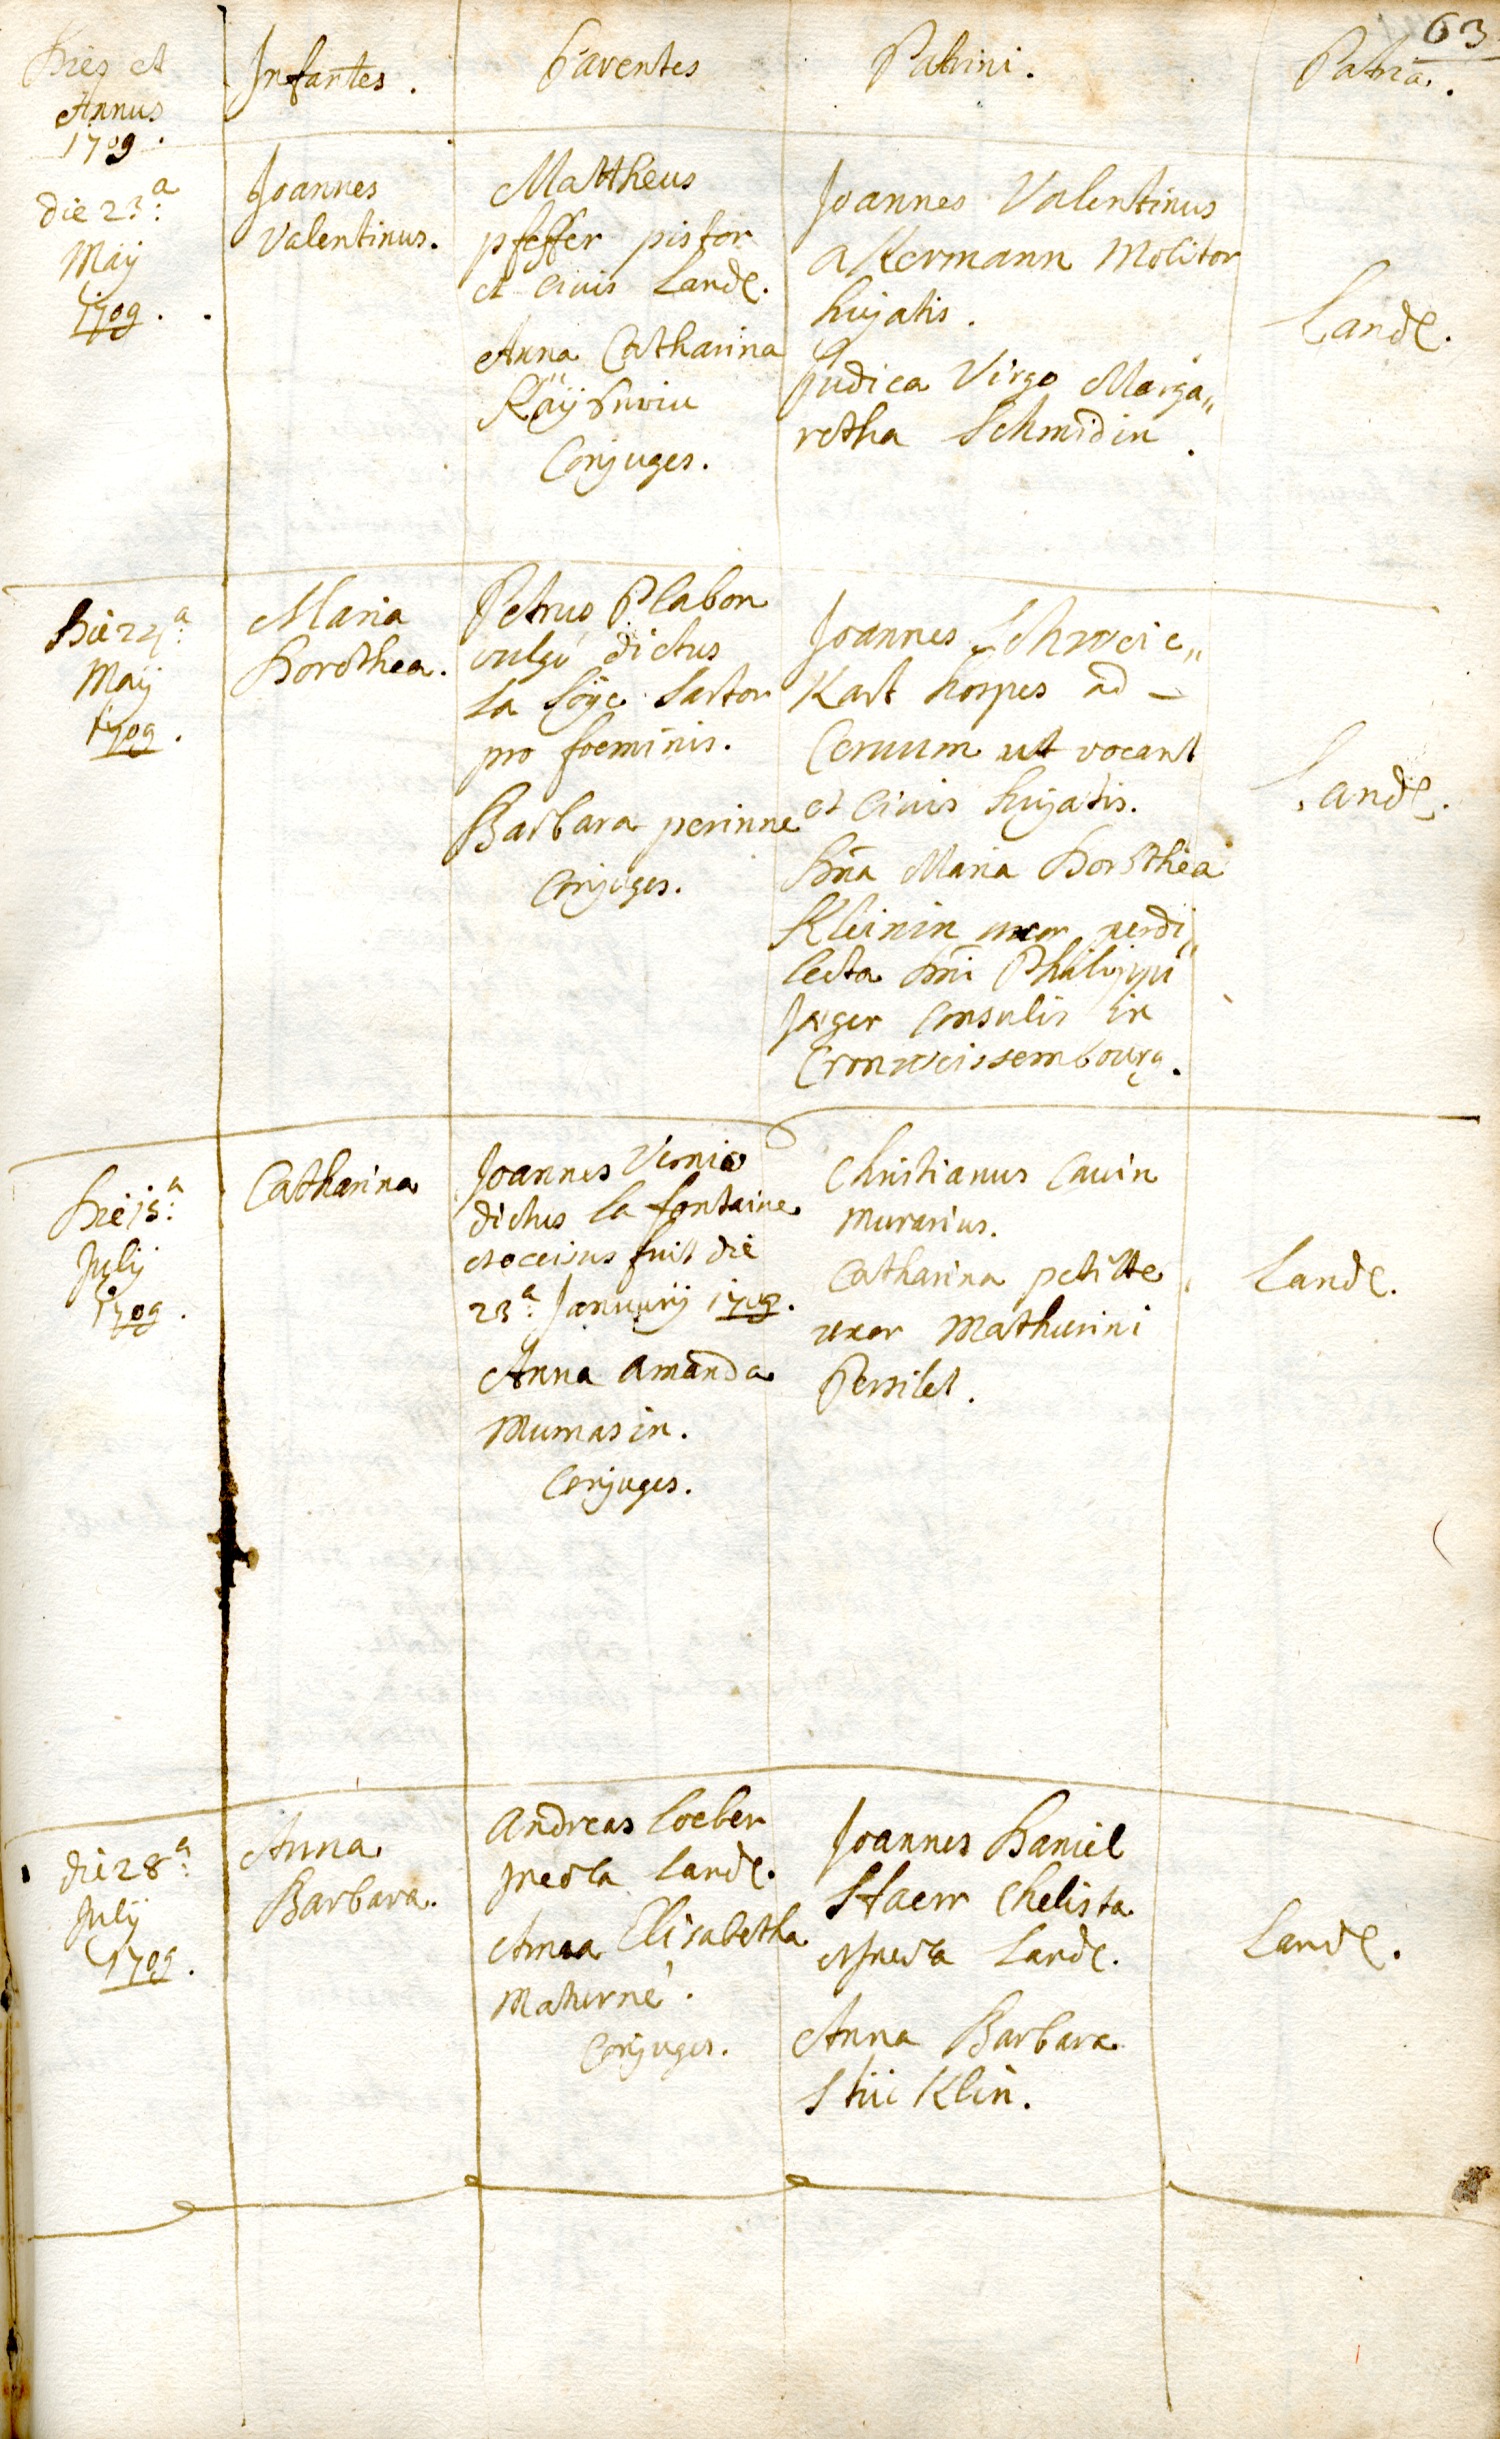 63
Dies et
Annus
1709.
Infantes.
Parentes
Patrini.
Patria.
die 23.a
Maij
1709.
Joannes
Valentinus.
Mattheus
pfeffer pistor
et civis Land.
Anna Catharina
Conjuges.
Joannes Valentinus
akermann Molitor
hujatis.
pudica Virgo Marga„
retha Schmidin.
Land.
Die 24.a
Maij
1709.
Maria
Dorothea.
Petrus Plabon
vulgò dictus
La Sartor
pro foeminis.
Barbara perinne
Conjuges.
Joannes Schweic„
Kart hospes ad –
Cervum ut vocant
et Civis hujatis.
Dna Maria Dorothea
Kleinin uxor perdi„
lecta Dni Philippi
Jaeger Consulis in
Cronweissembourg.
Land.
Die 15.a
Julij
1709.
Catharina
Joannes
dictus la fontaine
et occisus fuit die
23.a Januarij 1709.
Anna Amanda
Mumasin.
Conjuges.
Christianus Cavin
Murarius.
Catharina petitte
uxor Mathurini
Persilet.
Land.
die 28.a
Julij
1709.
Anna
Barbara.
Andreas Loeber
Incola Land.
Anna Elisabetha
Materne.
Conjuges.
Joannes Daniel
Staerr Chelista
et Incola Land.
Anna Barbara
StüiKlin.
Land.